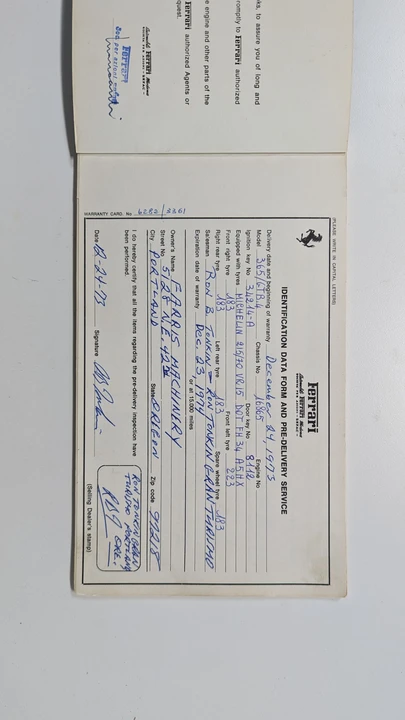 ks, to assure you of long and
romptly to Ferrari authorized
e engine and other parts of the
Ferrari authorized Agents or
quest.
Ferrari
(PLEASE WRITE IN CAPITAL LETTERS)
Ferrari
IDENTIFICATION DATA FORM AND PRE-DELIVERY SERVICE
Delivery date and beginning of warranty December 24, 1973
Model 365/GTB.4 Chassis No 16865 Engine No
Ignition key No 34214-A Door key No 8112
Equipped with tyres MICHELIN 215/70 VR15 DOT FH34 A5HX
Front right tyre 183 Front left tyre 223
Right rear tyre 183 Left rear tyre 183 Spare wheel tyre 183
Salesman RON B. TONKIN - RON TONKIN GRAN TURISMO
Expiration date of warranty Dec. 23, 1974 or at 15.000 miles
Owner's Name FARRIS MACHINERY
Street No 5728 N.E. 42nd
City PORTLAND State OREGON Zip code 97218
I do hereby certify that all the items regarding the pre-delivery inspection have
been performed.
Date 12-24-73 Signature
RON TONKIN GRAN
TURISMO PORTLAND
ORE.
(Selling Dealer's stamp)
WARRANTY CARD. No 4280/3361